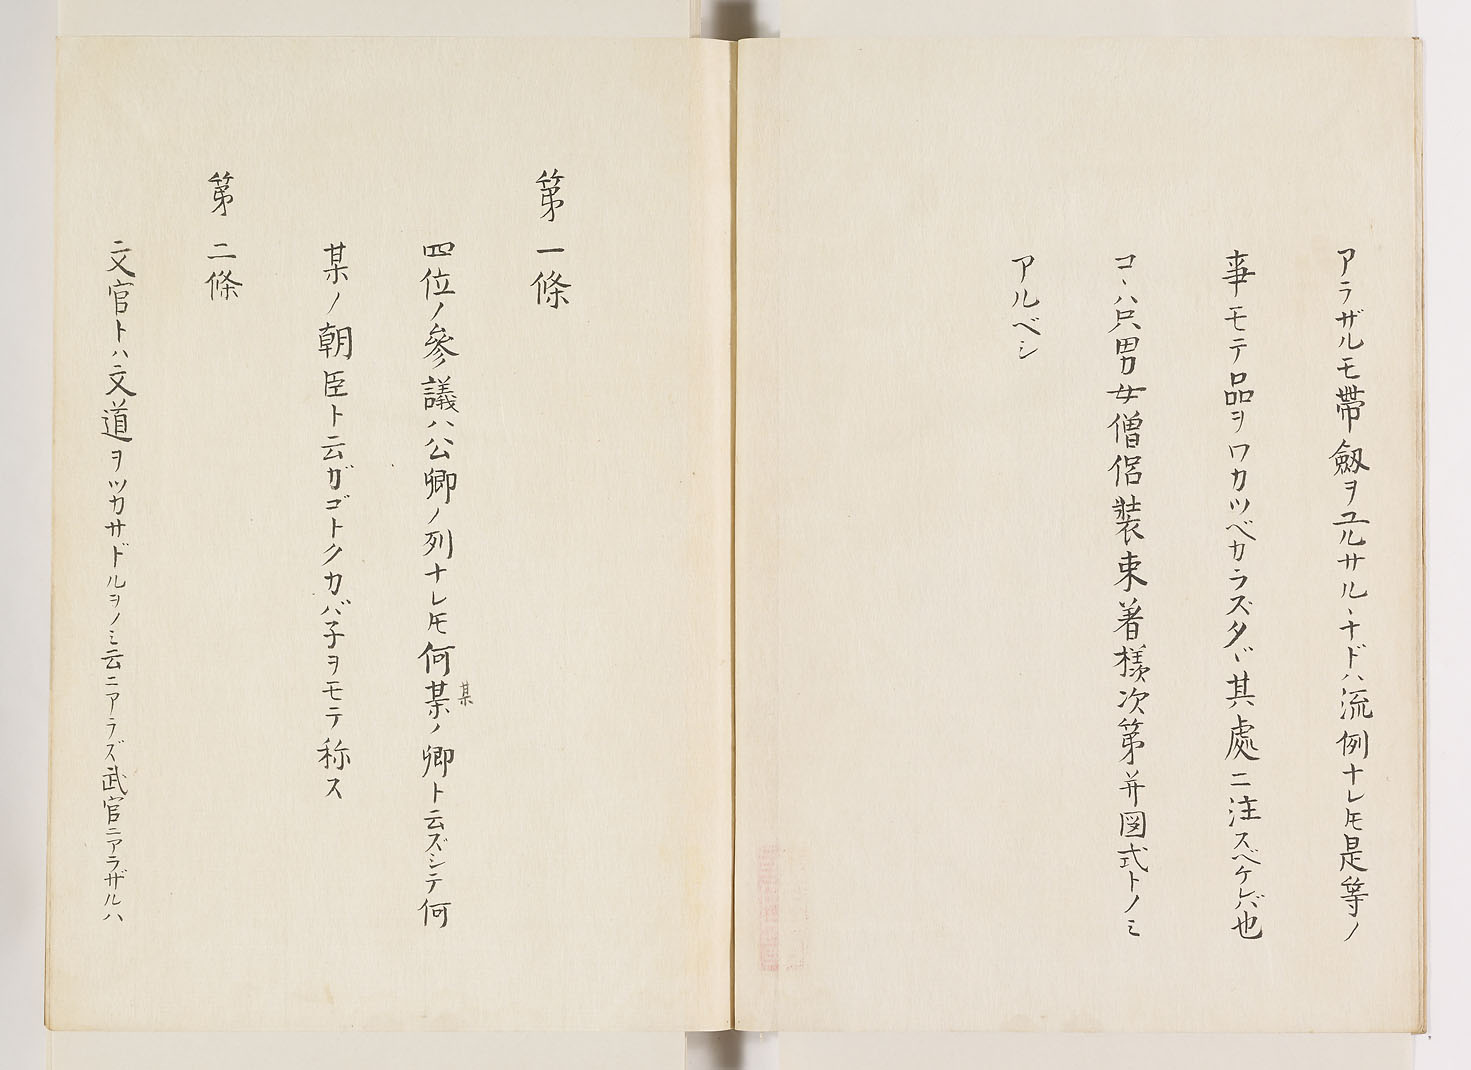 アラザルモ帶劔ヲユルサルヽナドハ流例ナレ𪜈是等ノ
事モテ品ヲワカツベカラズタヾ其處ニ注スベケレバ也
コヽハ只男女僧侶裝束着樣次第并図式トノミ
アルベシ
第一條
四位ノ參議ハ公卿ノ列ナレ𪜈何某ノ卿ト云ズシテ何
某
某ノ朝臣ト云ガゴトクカバ子ヲモテ称ス
第二條
文官トハ文道ヲツカサドルヲノミ云ニアラズ武官ニアラザルハ